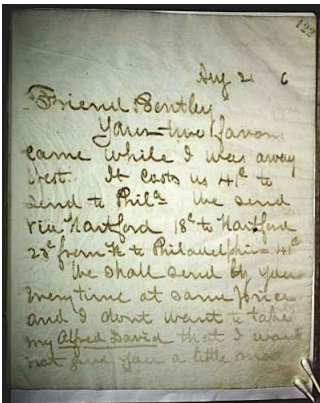 122
Aug 21 6
Friend Bentley
Your two favors
came while I was away
West. It costs us 41c to
send to Phila We send
via Hartford 18c to Hartford
23c from H to Philadelphia = 41c
We shall send by you
every time at same price
and I dont want to take
my Alfred David that I wont
not give you a little more